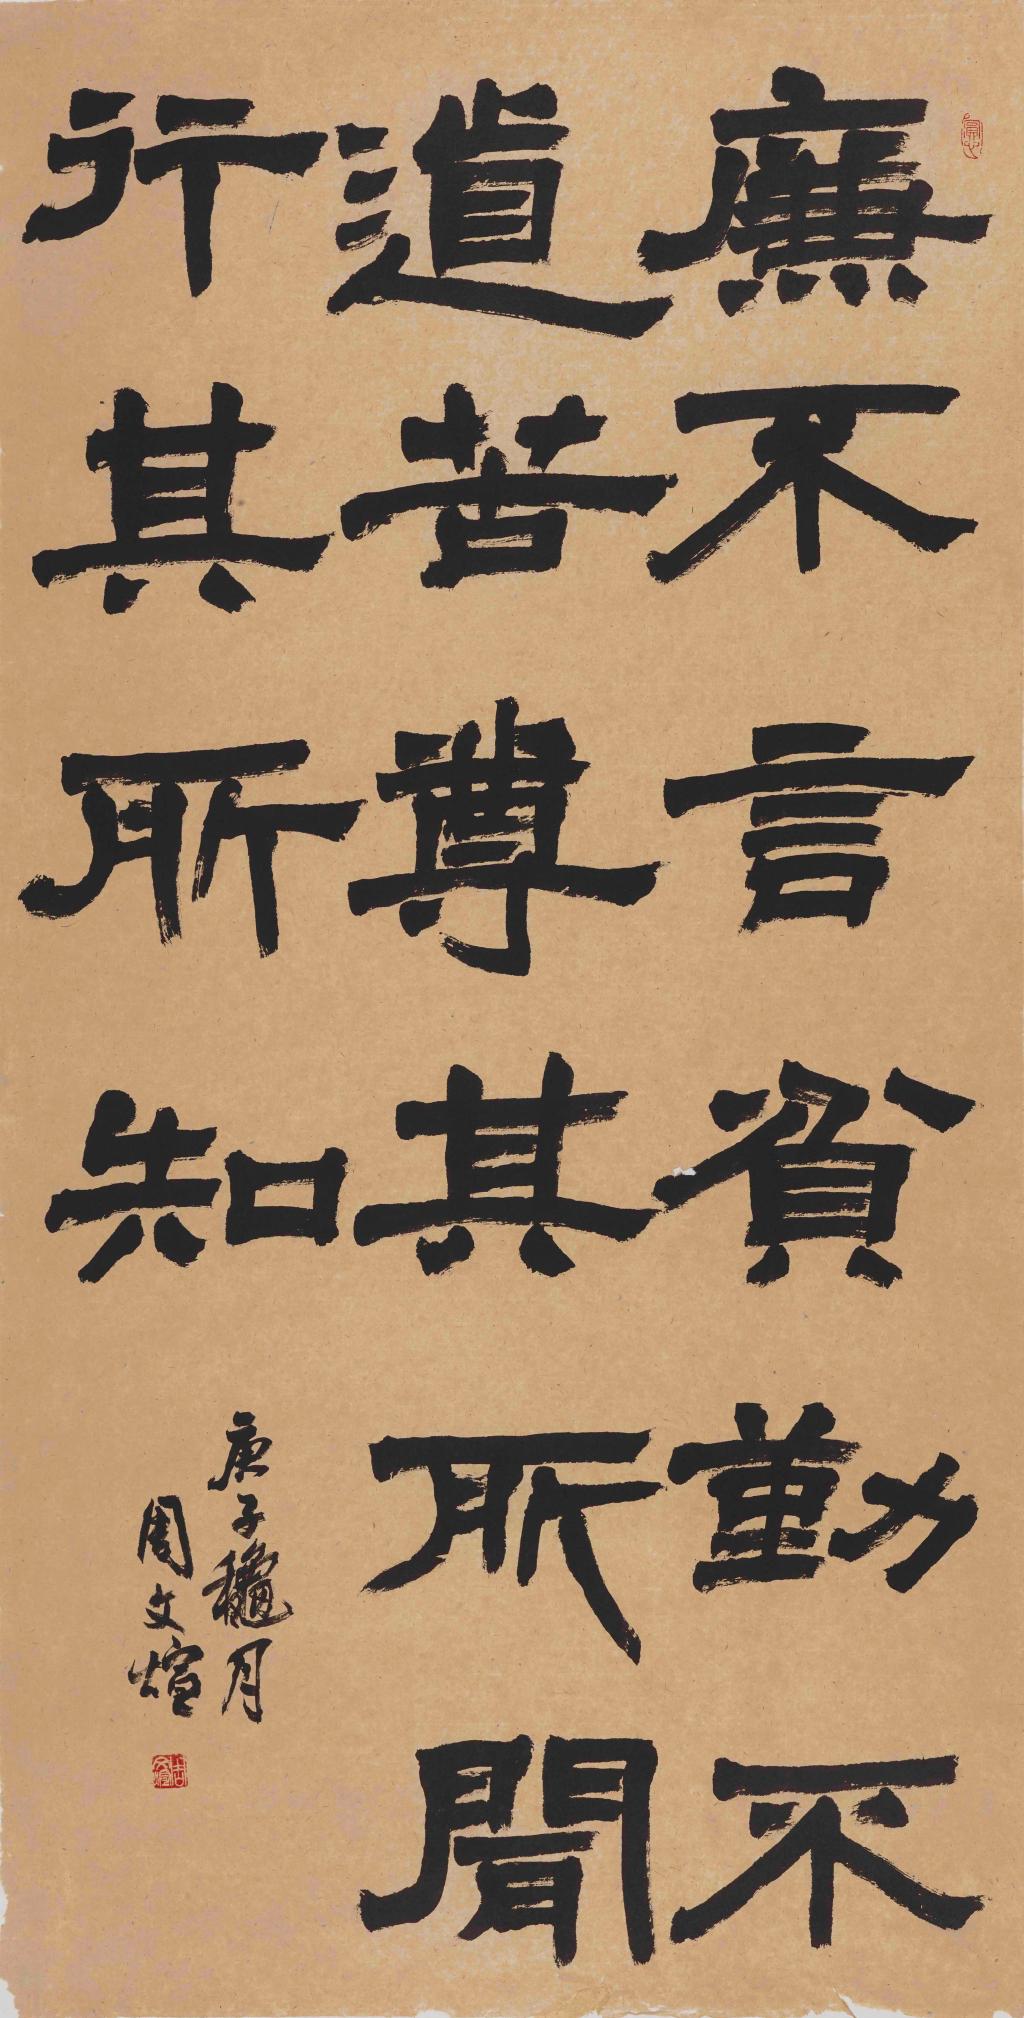 廉不言貧勤不
道苦尊其所聞
行其所知
庚子穐月
周文煊